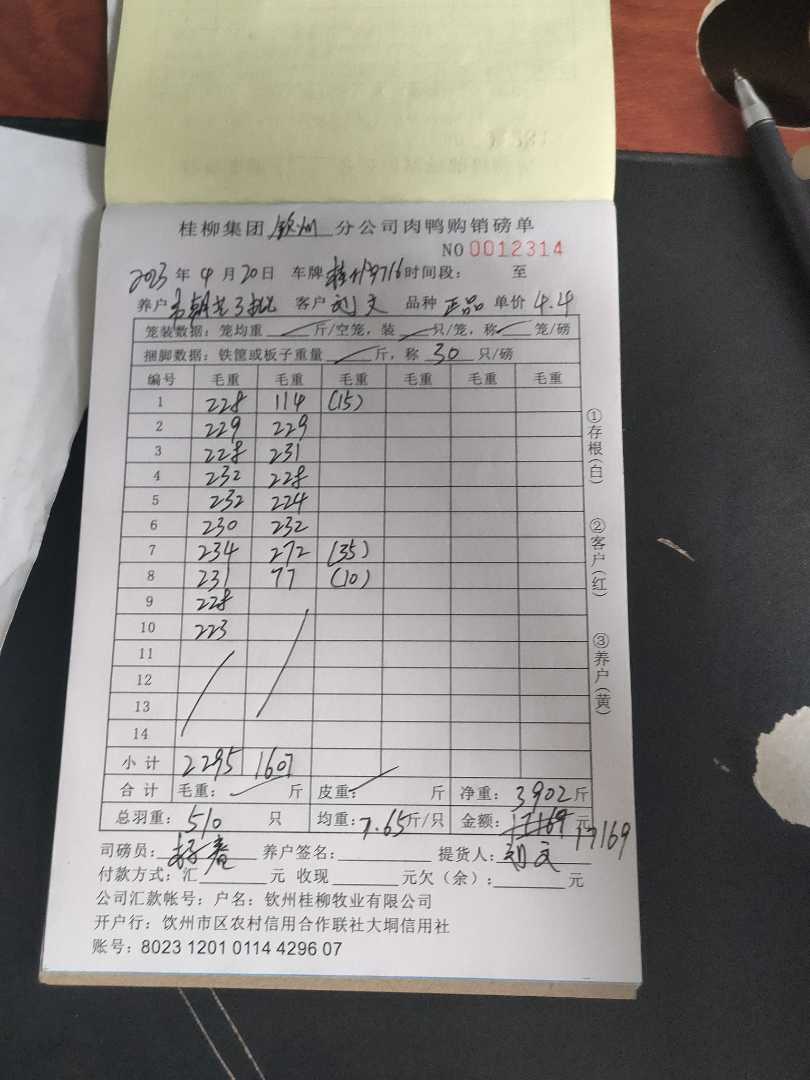 桂柳集团 钦州 分公司肉鸭购销磅单
NO 0012314
2023 年 4 月 20 日 车牌 716 时间段: 至
养户 3批 客户 刘文 品种 正品 单价 4.4
笼装数据: 笼均重 斤/空笼, 装 只/笼, 称 笼/磅
捆脚数据: 铁筐或板子重量 斤, 称 30 只/磅
编号 毛重 毛重 毛重 毛重 毛重 毛重
1 228 114 (15)
2 229 229
3 228 231
4 232 228
5 232 224
6 230 232
7 234 272 (35)
8 231 77 (10)
9 228
10 223
11
12
13
14
小计 2295 1607
合计 毛重: 斤 皮重: 斤 净重: 3902 斤
总羽重: 510 只 均重: 7.65 斤/只 金额: 17169 元 17169
司磅员: 养户签名: 提货人: 刘文
付款方式: 汇 元 收现 元欠(余): 元
公司汇款帐号: 户名: 钦州桂柳牧业有限公司
开户行: 钦州市区农村信用合作联社大垌信用社
账号: 8023 1201 0114 4296 07
①存根(白)
②客户(红)
③养户(黄)